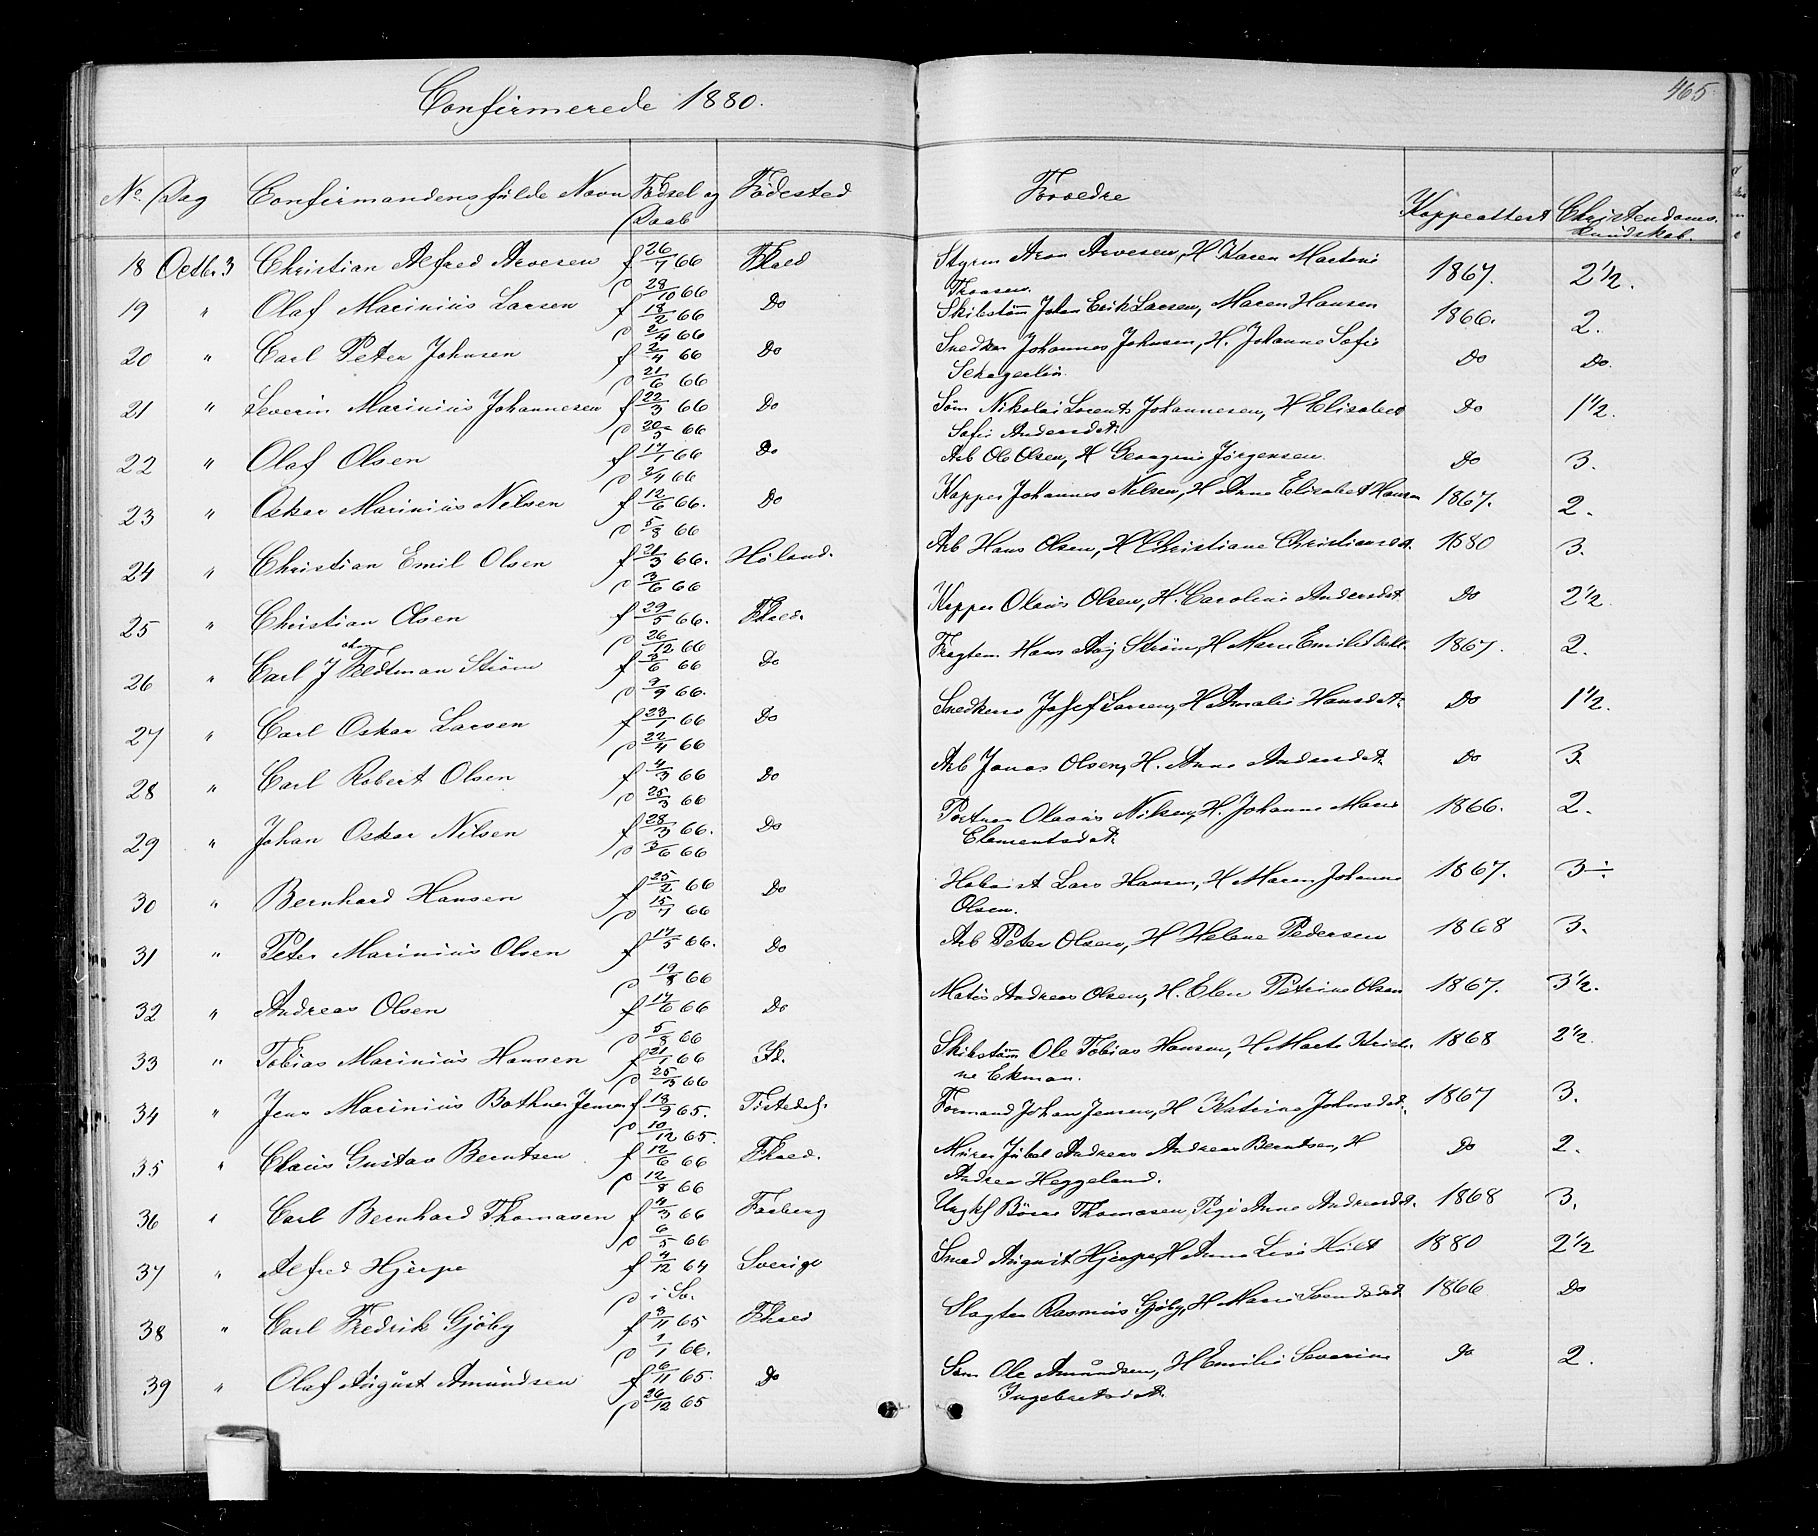 Confirmerede 1880.
465
No. Dag Confirmandens fulde Navn Fødsel og Daab Fødested Forældre Koppeattest Christendoms-kundskab.
18 Octbr. 3 Christian Alfred Arvesen f 26/7 66 Fhald Styrm Aron Arvesen, H. Karen Martine 1867. 2 1/2.
d 28/10 66
19 " Olaf Marinius Larsen f 18/2 66 Do Skibstøm Johan Erik Larsen, Maren Hansen 1866. 2.
d 2/4 66
20 " Carl Peter Johnsen f 2/4 66 Do Snedker Johannes Johnsen, H. Johanne Sofie Do Do.
d 21/6 66
21 " Severin Marinius Johannesen f 22/3 66 Do Søm Nikolai Lorents Johannesen, H Elisabet Do 1 1/2.
d 20/5 66 Sofie Andersdt.
22 " Olaf Olsen f 17/1 66 Do Arb Ole Olsen, H Georgine Jörgensen. Do 3.
d 2/4 66
23 " Oskar Marinius Nilsen f 12/6 66. Do Kopper Johannes Nilsen, H Anne Elisabet Hansen 1867. 2.
d 5/8 66
24 " Christian Emil Olsen f 21/3 66. Høland. Arb Hans Olsen, H Christiane Christiansdt. 1880 3.
d 3/6 66
25 " Christian Olsen f 29/5 66. Fhald. Kopper Olaus Olsen, H. Caroline Andersdt Do 2 1/2.
d 26/12 66
26 " Carl J Feldtman Strøm f 2/6 66 Do Fragtem Hans Aug Strøm, H Maren Emilie 1867. 2.
d 9/9 66.
27 " Carl Oskar Larsen f 23/1 66 Do Snedkers Josef Larsen, H Amalie Hansdt. Do 1 1/2.
d 22/4 66
28 " Carl Robert Olsen f 4/3 66 Do Arb Jonas Olsen, H. Anne Andersdt. Do 3.
d 25/3 66
29 " Johan Oskar Nilsen f 28/3 66. Do Portner Olavus Nilsen, H. Johanne Marie 1866. 2.
d 3/6 66 Clementsdt.
30 " Bernhard Hansen f 25/2 66 Do Hoboist Lars Hansen, H Maren Johanne 1867. 3 ÷.
d 15/7 66 Olsen.
31 " Peter Marinius Olsen f 17/5 66. Do Arb Peter Olsen, H Helene Pedersen 1868 3.
d 19/8 66
32 " Andreas Olsen f 17/6 66 Do Matös Andreas Olsen, H. Elen Petrine Olsen 1867. 3 1/2.
d 5/8 66
33 " Tobias Marinius Hansen f 21/1 66 Skibstøm Ole Tobias Hansen, H Marte Kristi- 1868 2 1/2.
d 25/3 66 ne Ekman.
34 " Jens Marinius Bothner Jensen f 13/9 65. Tistedal. Formand Johan Jensen, H Katrine Johnsdt. 1867 3.
d 10/12 65.
35 " Claus Gustav Berntsen f 12/6 66 Fhald. Murer Jubal Andreas Andreas Berntsen, H Do 2.
d 12/8 66 Andrea Heggeland.
36 " Carl Bernhard Thomasen f 4/3 66 Faaberg Ungkl Börre Thomasen, Pige Anne Andreasdt. 1868 3.
d 6/5 66
37 " Alfred Hjerpe f 4/12 64 Sverige Smed August Hjerpe, H Anna Lise Hult 1880 2 1/2
d i Sv.
38 " Carl Fredrik Gjöby f 9/11 65 Fhald Slagter Rasmus Gjöby, H Marie Svendsdt 1866 Do
d 1/1 66.
39 " Olaf August Amundsen f 6/11 65. Do Søm Ole Amundsen, H Emilie Severine Do 2.
d 26/12 65 Ingebretsdt.